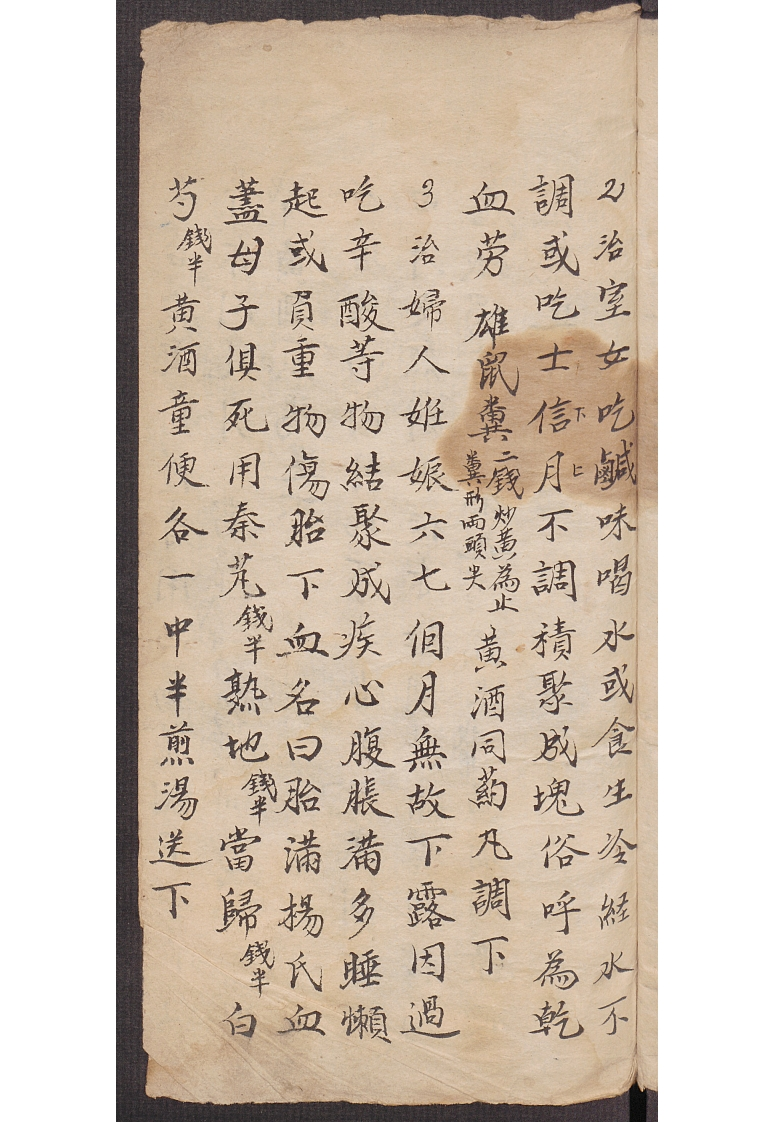 2治室女吃鹹味喝水或食生冷経水不
調或吃士信月不調積聚成塊俗呼為乾
下上
血劳 雄鼠糞二錢炒黄為止糞形兩頭尖 黄酒同药丸調下
3治婦人姙娠六七個月無故下露因過
吃辛酸等物結聚成疾心腹脹满多睡懶
起或負重物傷胎下血名曰胎满揚氏血
蓋母子俱死用秦艽錢半熟地錢半當歸錢半白
芍錢半黄酒童便各一中半煎湯送下